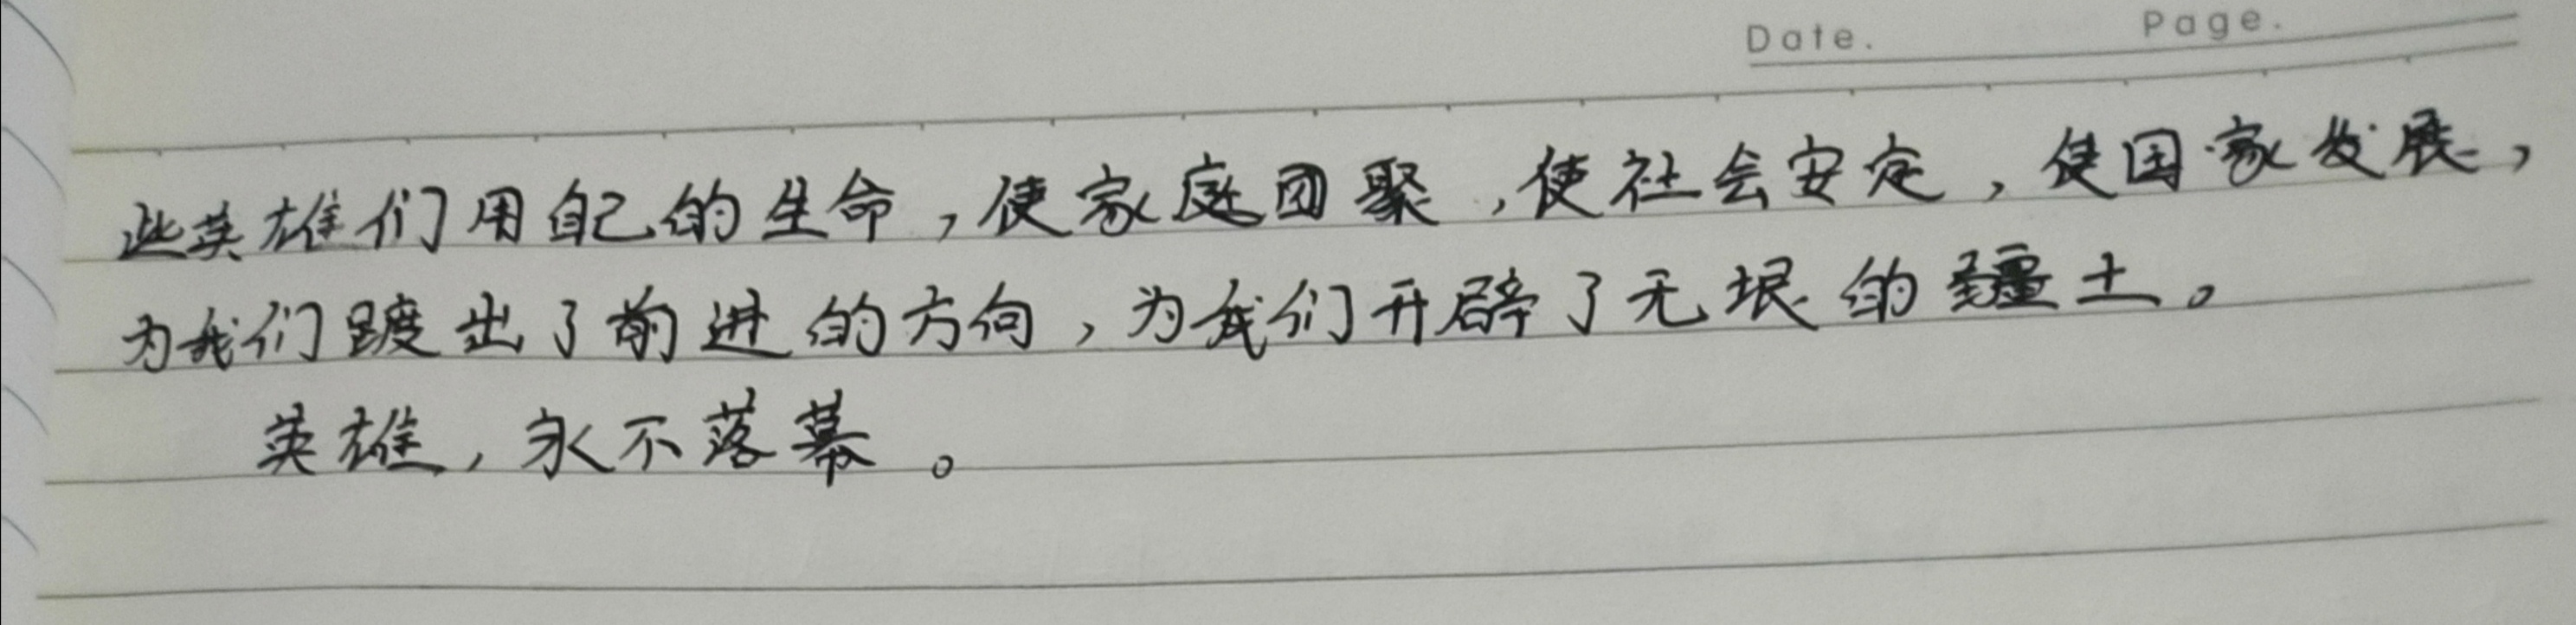 Date. Page.
些英雄们用自己的生命，使家庭团聚，使社会安定，使国家发展，
为我们踱出了前进的方向，为我们开辟了无垠的疆土。
英雄，永不落幕。